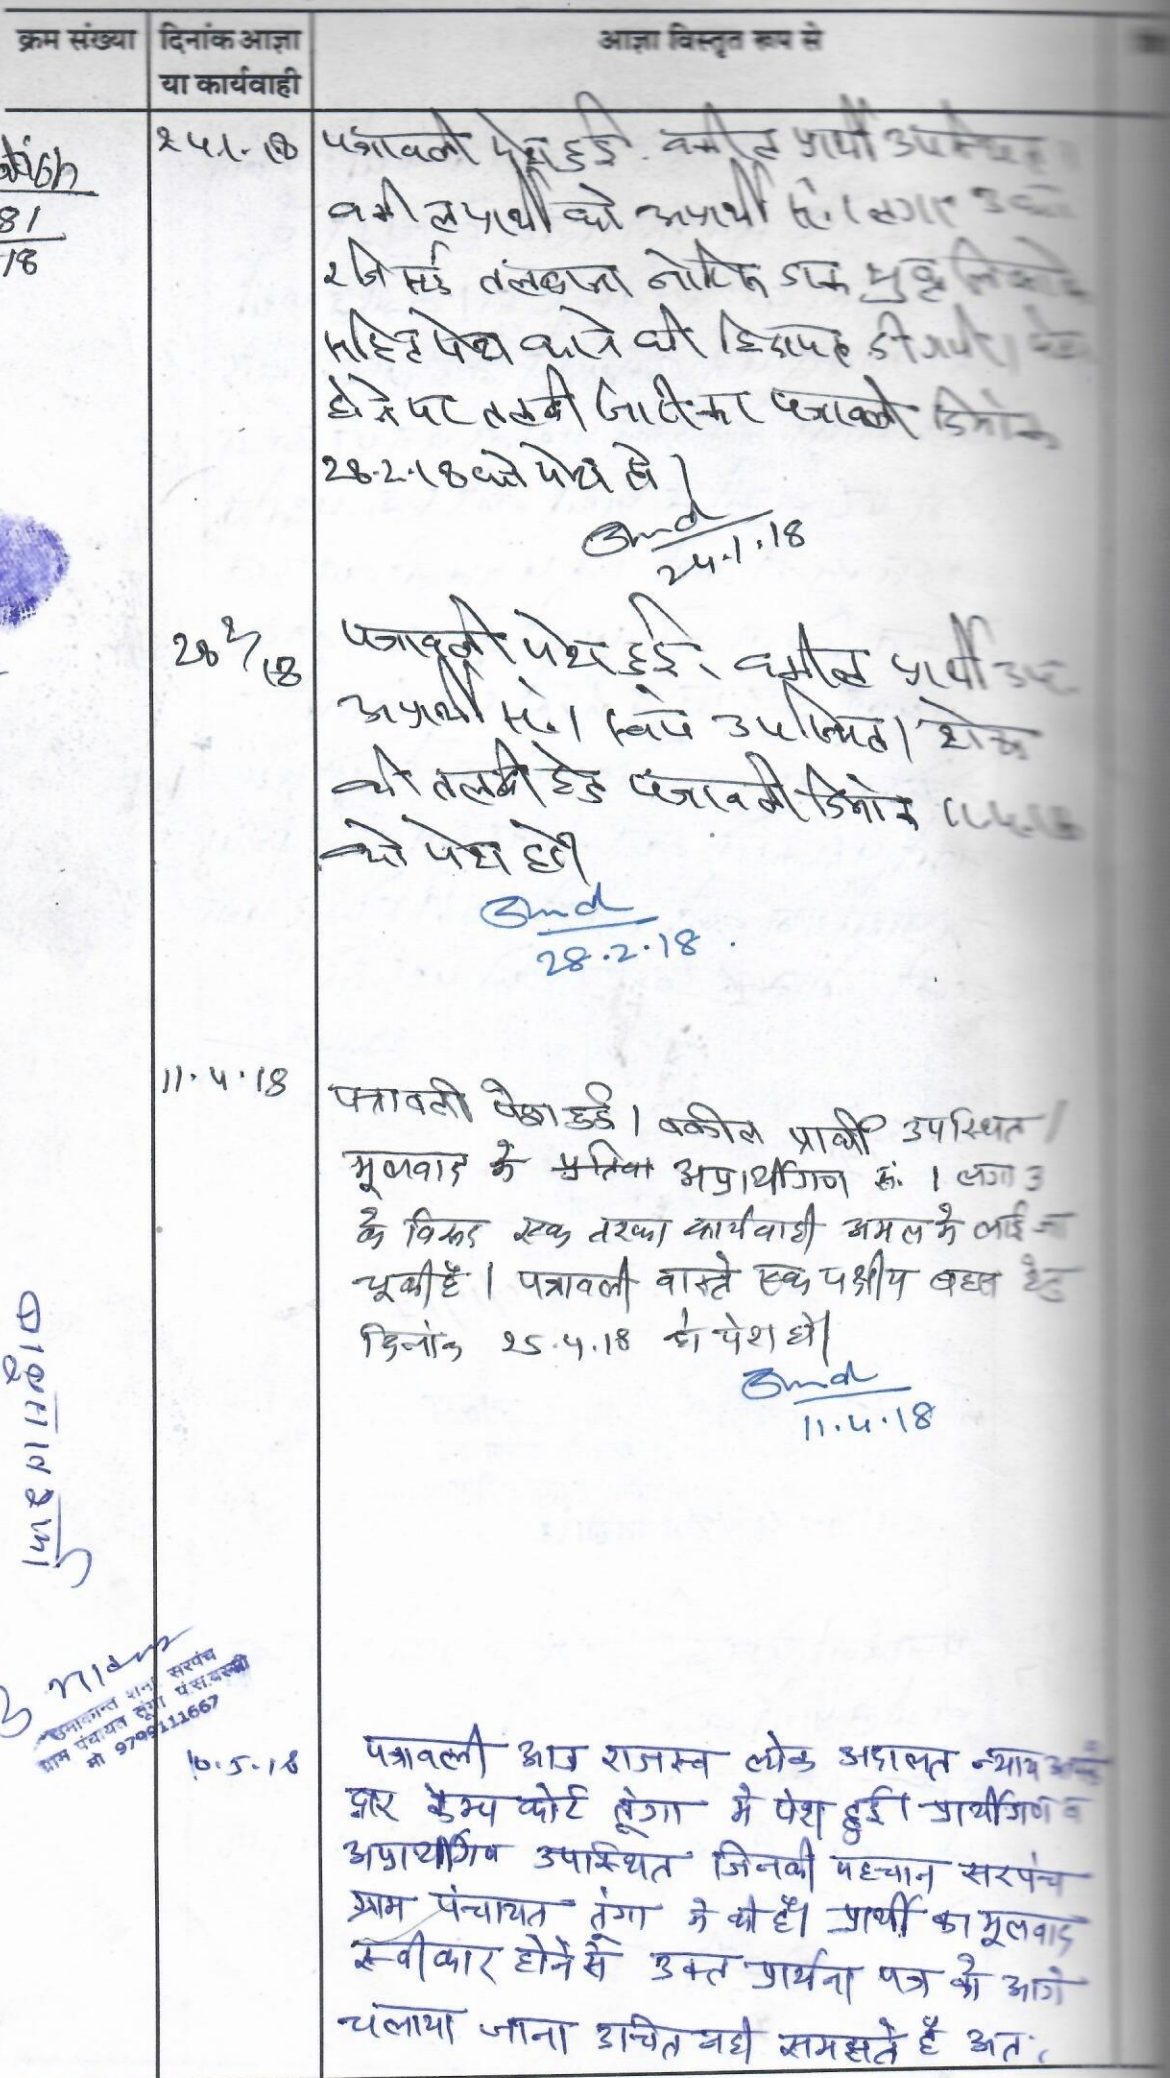 क्रम संख्या दिनांक आज्ञा या कार्यवाही आज्ञा विस्तृत रूप से
81
18
24.1.18 पत्रावली पेश हुई. वकील प्रार्थी उपस्थित
वकील प्रार्थी को अप्रार्थी सं. 1 लगा. 3 को
रजिस्टर्ड तलवाना नोटिस डाक
सहित पेश करने की हिदायत दी गयी।
होने पर तलबी जारी कर पत्रावली दिनांक
28.2.18 को पेश हो।
24.1.18
28 2/18 पत्रावली पेश हुई। वकील प्रार्थी उप.
अप्रार्थी सं. 1 स्वयं उपस्थित। शेष
की तलबी हेतु पत्रावली दिनांक
को पेश हो।
28.2.18
11.4.18 पत्रावली पेश हुई। वकील प्रार्थी उपस्थित।
मूलवाद के अप्रार्थीगण सं. 1 लगा 3
के विरुद्ध एक तरफा कार्यवाही अमल में लाई जा
चूकी है। पत्रावली वास्ते एक पक्षीय बहस हेतु
दिनांक 25.4.18 को पेश हो।
11.4.18
उमाकान्त शर्मा सरपंच
ग्राम पंचायत तूंगा पं.स. बस्सी
मो 9799111667
10.5.18 पत्रावली आज राजस्व लोक अदालत न्याय आपके
द्वार केम्प कोर्ट तूंगा मे पेश हुई। प्रार्थीगण व
अप्रार्थीगण उपस्थित जिनकी पहचान सरपंच
ग्राम पंचायत तूंगा ने की है। प्रार्थी का मूलवाद
स्वीकार होने से उक्त प्रार्थना पत्र को आगे
चलाया जाना उचित नही समझते है अतः